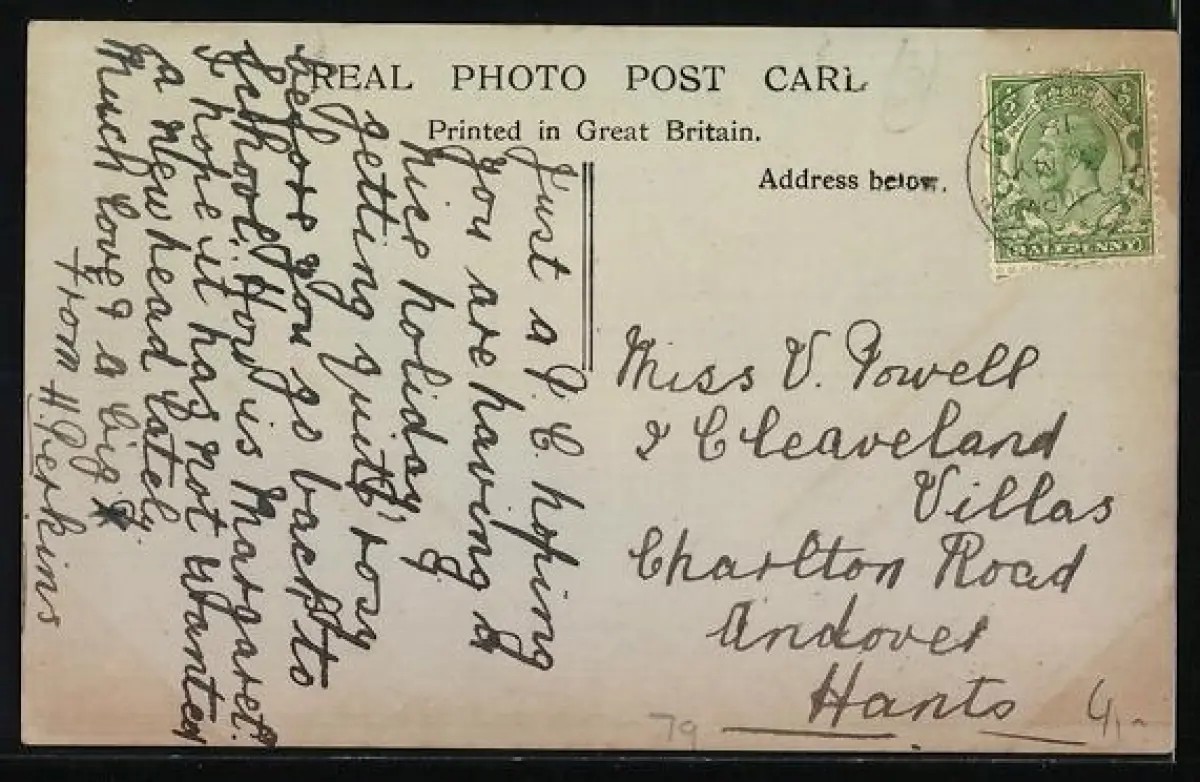 REAL PHOTO POST CARD
Printed in Great Britain.
Address below.
HALFPENNY
Just a P. C hoping
you are having a
nice holiday,
getting quite rosy
before you go back to
School. How is Margaret.
I hope it has not wanted
a new head lately.
Much love & a big
from H. Perkins
Miss V. Powell
2 Cleaveland
Villas
Charlton Road
Andover
Hants
79
4,-